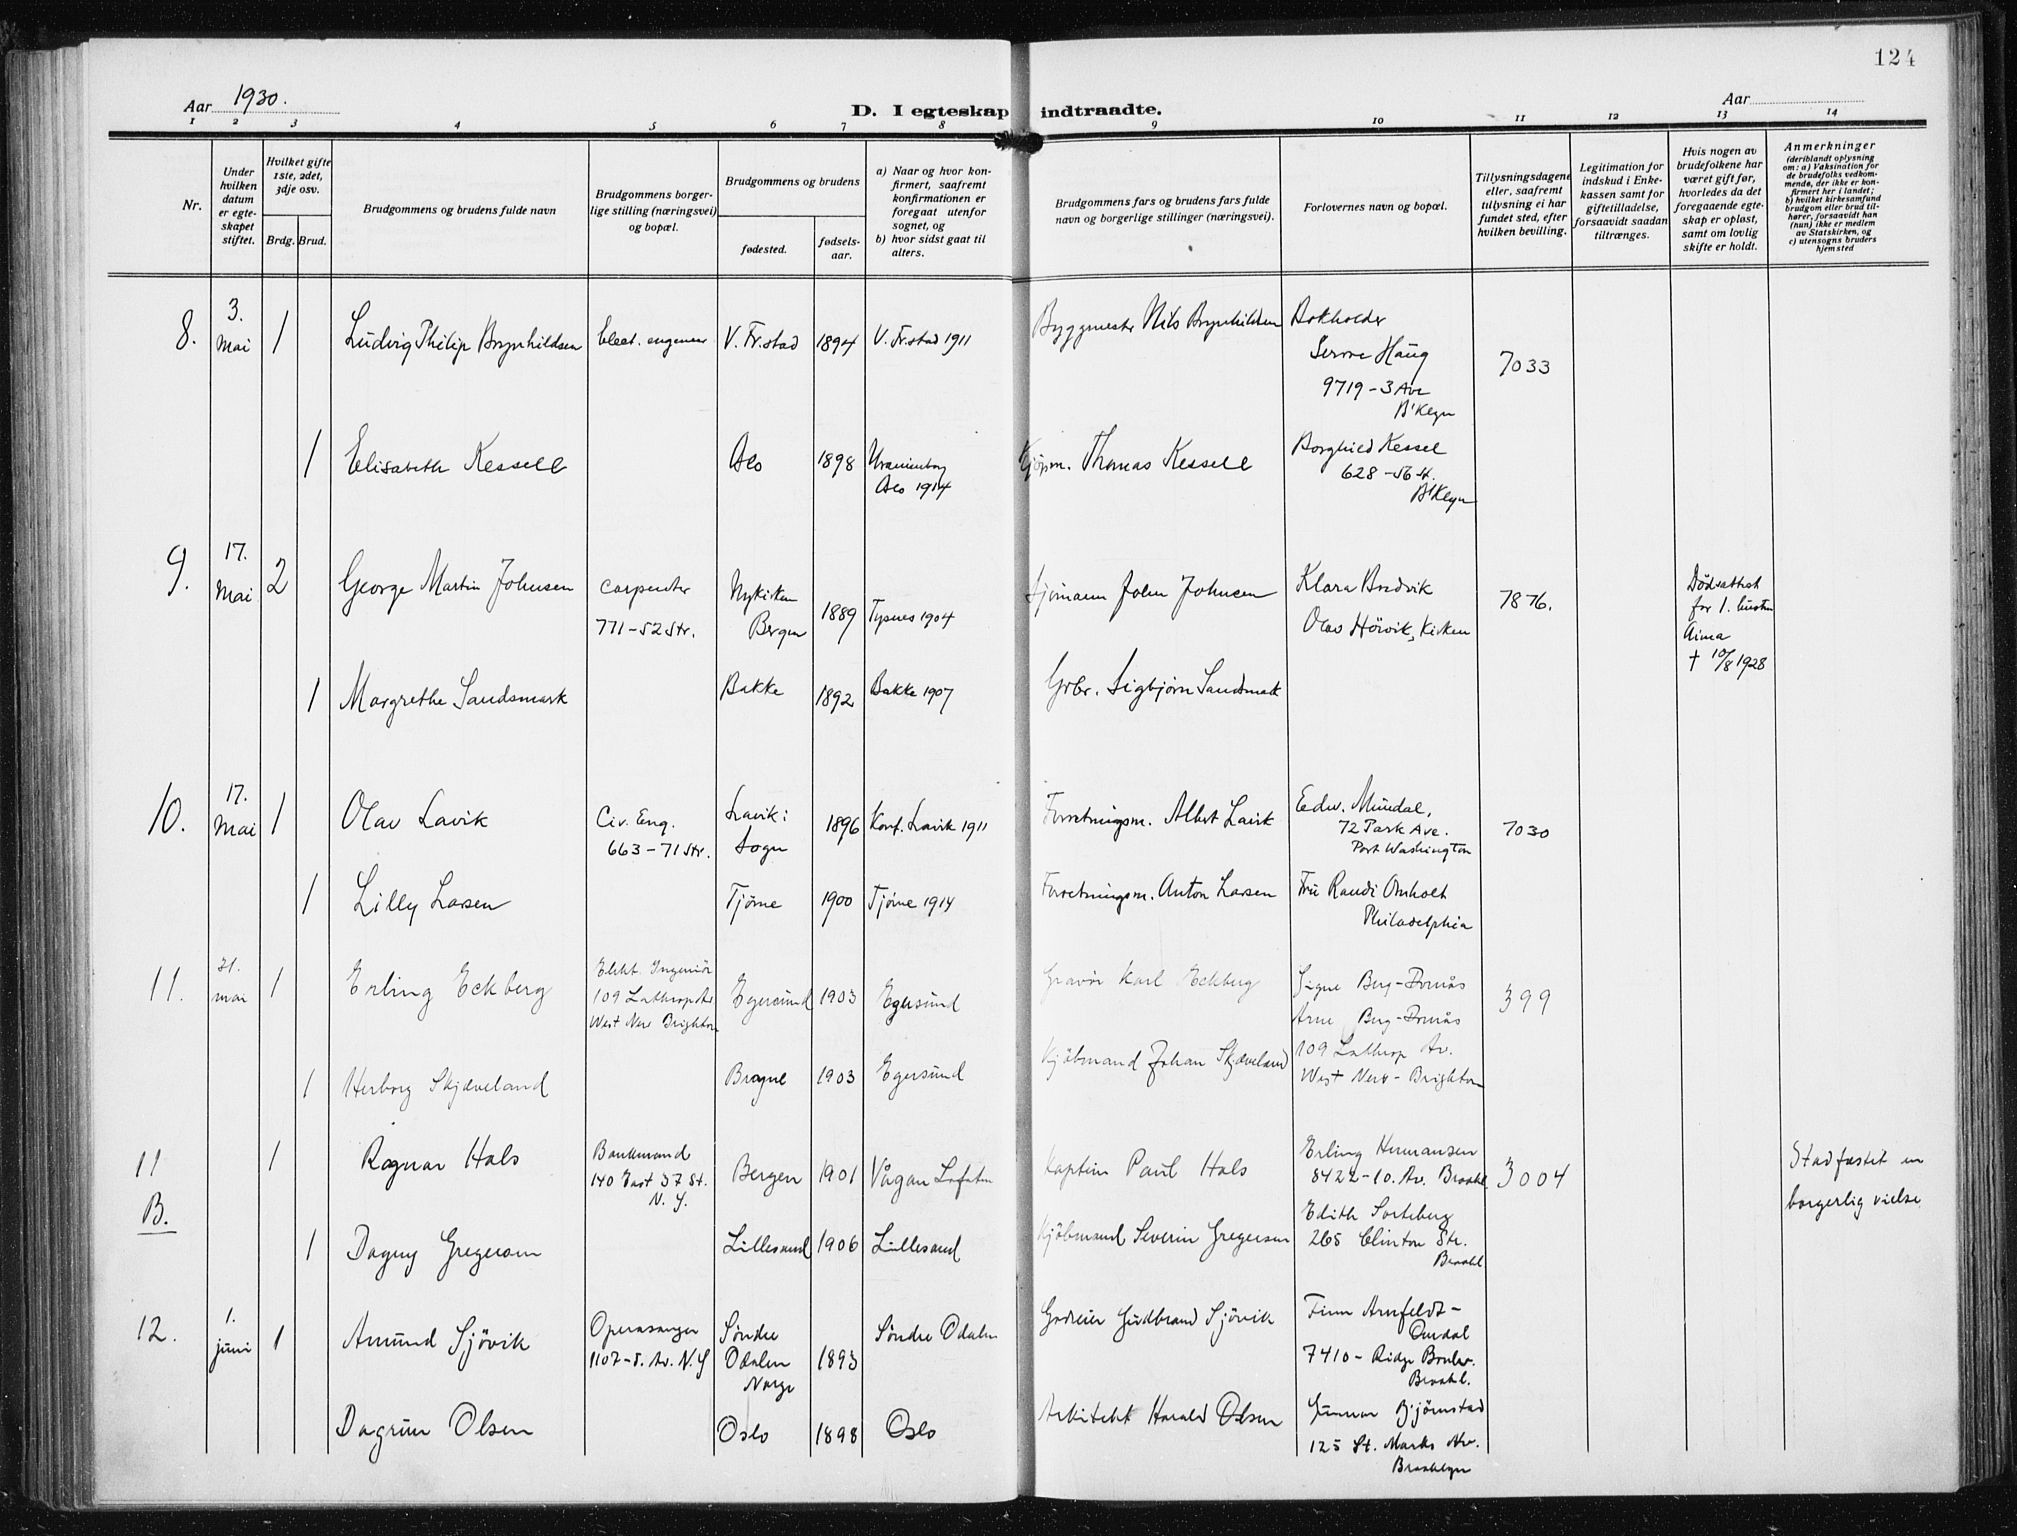 124
Aar 1930.
D. I egteskap indtraadte.
Aar
1 2 3 4 5 6 7 8 9 10 11 12 13 14
Nr.
Under
hvilken
datum
er egte-
skapet
stiftet.
Hvilket gifte
1ste, 2det,
3dje osv.
Brdg. Brud.
Brudgommens og brudens fulde navn
Brudgommens borger-
lige stilling (næringsvei)
og bopæl.
Brudgommens og brudens
fødested.
fødsels-
aar.
a) Naar og hvor kon-
firmert, saafremt
konfirmationen er
foregaat utenfor
sognet, og
b) hvor sidst gaat til
alters.
Brudgommens fars og brudens fars fulde
navn og borgerlige stillinger (næringsvei).
Forlovernes navn og bopæl.
Tillysningsdagene
eller, saafremt
tillysning ei har
fundet sted, efter
hvilken bevilling.
Legitimation for
indskud i Enke-
kassen samt for
giftetilladelse,
forsaavidt saadan
tiltrænges.
Hvis nogen av
brudefolkene har
været gift før,
hvorledes da det
foregaaende egte-
skap er opløst,
samt om lovlig
skifte er holdt.
Anmerkninger
(deriblandt oplysning
om: a) Vaksination for
de brudefolks vedkom-
mende, der ikke er kon-
firmert her i landet;
b) hvilket kirkesamfund
brudgom eller brud til-
hører, forsaavidt han
(hun) ikke er medlem
av Statskirken, og
c) utensogns bruders
hjemsted
8. 3. Mai 1 Ludvig Philip Brynhildsen Elect. engeneer V. Fr.stad 1894 V. Fr.stad 1911 Byggmester Nils Brynhildsen Bokholder
Haug 7033
9719 - 3 Ave
B'klyn
1 Elisabeth Kessell Oslo 1898 Uranienborg
Oslo 1914 Kjøpm. Thomas Kessell Borghild Kessel
628 - 56 St.
B'klyn
9. 17. Mai 2 George Martin Johnsen Carpenter
771 - 52 Str. Nykirken
Bergen 1889 Tysnes 1904 Sjømann John Johnsen Klara Bredvik
Olav Hörvik, Kirken 7876. Dödsattest
for 1. hustru
Aima
† 10/8 1928
1 Margrethe Sandsmark Bakke 1892 Bakke 1907 Grbr. Sigbjörn Sandsmark
10. 17. Mai 1 Olav Lavik Civ. Eng.
663 - 71 Str. Lavik i
Sogn 1896 Konf. Lavik 1911 Forretningsm. Albert Lavik Edw. Mundal,
72 Park Ave.
Port Washington 7030
1 Lilly Larsen Tjöme 1900 Tjöme 1914 Forretningsm. Anton Larsen Fru Randi Omholt
Philadelphia
11. 31. mai 1 Erling Eckberg Elekt. Ingeniör
109 Lathrop Av
West New Brighton Egersund 1903 Egersund Gravör Karl Eckberg Signe Berg-Dornås
Arne Berg-Dornås 399
1 Herborg Skjæveland Brogne 1903 Egersund Kjöbmand Johan Skjæveland 109 Lathrop Av.
West New-Brighton
11 B. 1 Ragnar Hals Bankmand
140 East 37 St.
N. Y. Bergen 1901 Vågan Lofoten Kaptein Paul Hals Erling Hermansen
8422 - 10. Av. Brookl. 3004 Stadfæstet en
borgerlig vielse
1 Dagny Gregersen Lillesand 1906 Lillesand Kjöbmand Severin Gregersen Edith Sorteberg
265 Clinton Str.
Brookl
12. 1. juni 1 Amund Sjövik Operasanger
1107 - 5. Av. N.Y Söndre
Odalen
Norge 1893 Söndre Odalen Gudbrand Sjövik Finn Arnfeldt-
Omdal
7410 - Ridge Boulev.
Brookl.
Dagrun Olsen Oslo 1898 Oslo Arkitekt Harald Olsen Gunnar Björnstad
125 St. Marks Av.
Brooklyn